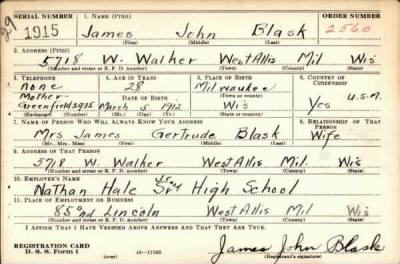 29
SERIAL NUMBER 1. NAME (Print) ORDER NUMBER
1915 James John Blask 2560
(First) (Middle) (Last)
2. ADDRESS (Print)
5718 W. Walker West Allis Mil Wis
(Number and street or R. F. D. number) (Town) (County) (State)
3. TELEPHONE 4. AGE IN YEARS 5. PLACE OF BIRTH 6. COUNTRY OF CITIZENSHIP
none 28 Milwaukee
Mother- DATE OF BIRTH (Town or county) U.S.A.
Greenfield 2935 March 5 1912 Wis Yes
(Mo.) (Day) (Yr.) (State or country)
7. NAME OF PERSON WHO WILL ALWAYS KNOW YOUR ADDRESS 8. RELATIONSHIP OF THAT PERSON
Mrs James Gertrude Blask Wife
(Mr., Mrs., Miss) (First) (Middle) (Last)
9. ADDRESS OF THAT PERSON
5718 W. Walker West Allis Mil. Wis.
(Number and street or R. F. D. number) (Town) (County) (State)
10. EMPLOYER'S NAME
Nathan Hale High School
11. PLACE OF EMPLOYMENT OR BUSINESS
85 2nd Lincoln West Allis Mil Wis
(Number and street or R. F. D. number) (Town) (County) (State)
I AFFIRM THAT I HAVE VERIFIED ABOVE ANSWERS AND THAT THEY ARE TRUE.
REGISTRATION CARD
D. S. S. Form 1 (over) James John Blask
(Registrant's signature)